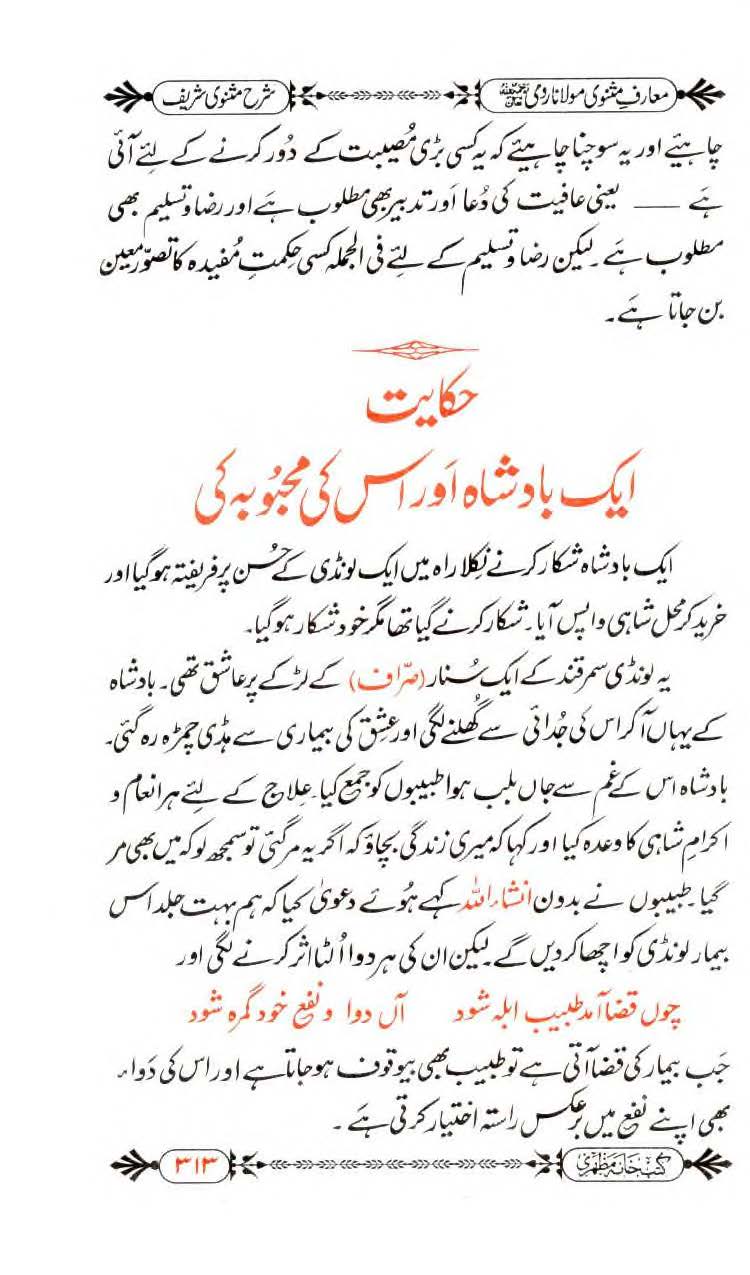 معارفِ مثنوی مولانا رومی رحمۃ اللہ علیہ
شرح مثنوی شریف
چاہیئے اور یہ سوچنا چاہیئے کہ یہ کسی بڑی مُصیبت کے دُور کرنے کے لئے آئی
ہَے ـــــ یعنی عافیت کی دُعا اَور تدبیر بھی مطلوب ہَے اور رضا و تسلیم بھی
مطلوب ہَے۔ لیکن رضا و تسلیم کے لئے فی الجملہ کسی حِکمتِ مُفیدہ کا تصوّر معین
بن جاتا ہَے۔
حکایت
ایک بادشاہ اَور اس کی محبُوبہ کی
ایک بادشاہ شکار کرنے نِکلا راہ میں ایک لونڈی کے حُسن پر فریفتہ ہوگیا اور
خرید کر محل شاہی واپس آیا۔ شکار کرنے گیا تھا مگر خود شکار ہوگیا۔
یہ لونڈی سمرقند کے ایک سُنار (صرّاف) کے لڑکے پر عاشق تھی۔ بادشاہ
کے یہاں آکر اس کی جُدائی سے گُھلنے لگی اور عِشق کی بیماری سے ہڈی چمڑہ رہ گئی۔
بادشاہ اس کے غم سے جاں بلب ہوا طبیبوں کو جمع کیا۔ عِلاج کے لئے ہر انعام و
اکرامِ شاہی کا وعدہ کیا اور کہا کہ میری زندگی بچاؤ کہ اگر یہ مرگئی تو سمجھ لو کہ میں بھی مر
گیا۔ طبیبوں نے بدون انشاء اللہ کہے ہُوئے دعویٰ کیا کہ ہم بہت جلد اس
بیمار لونڈی کو اچھا کردیں گے۔ لیکن ان کی ہر دوا اُلٹا اثر کرنے لگی اور
چوں قضا آمد طبیب ابلہ شود آں دوا و نفع خود گمرہ شود
جَب بیمار کی قضا آتی ہے تو طبیب بھی بیوقوف ہوجاتا ہے اور اس کی دَواء
بھی اپنے نفع میں برعکس راستہ اختیار کرتی ہَے ۔
کتب خانہ مظہری
۳۱۳